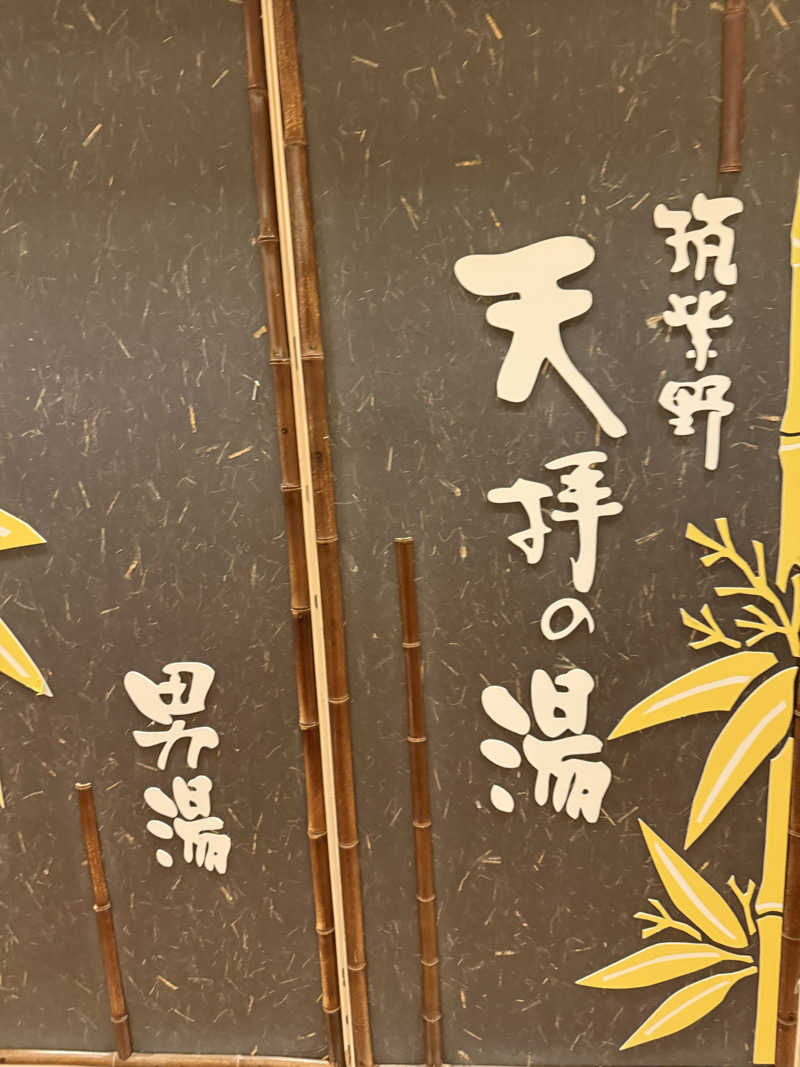 筑紫野
天拝の湯
男湯